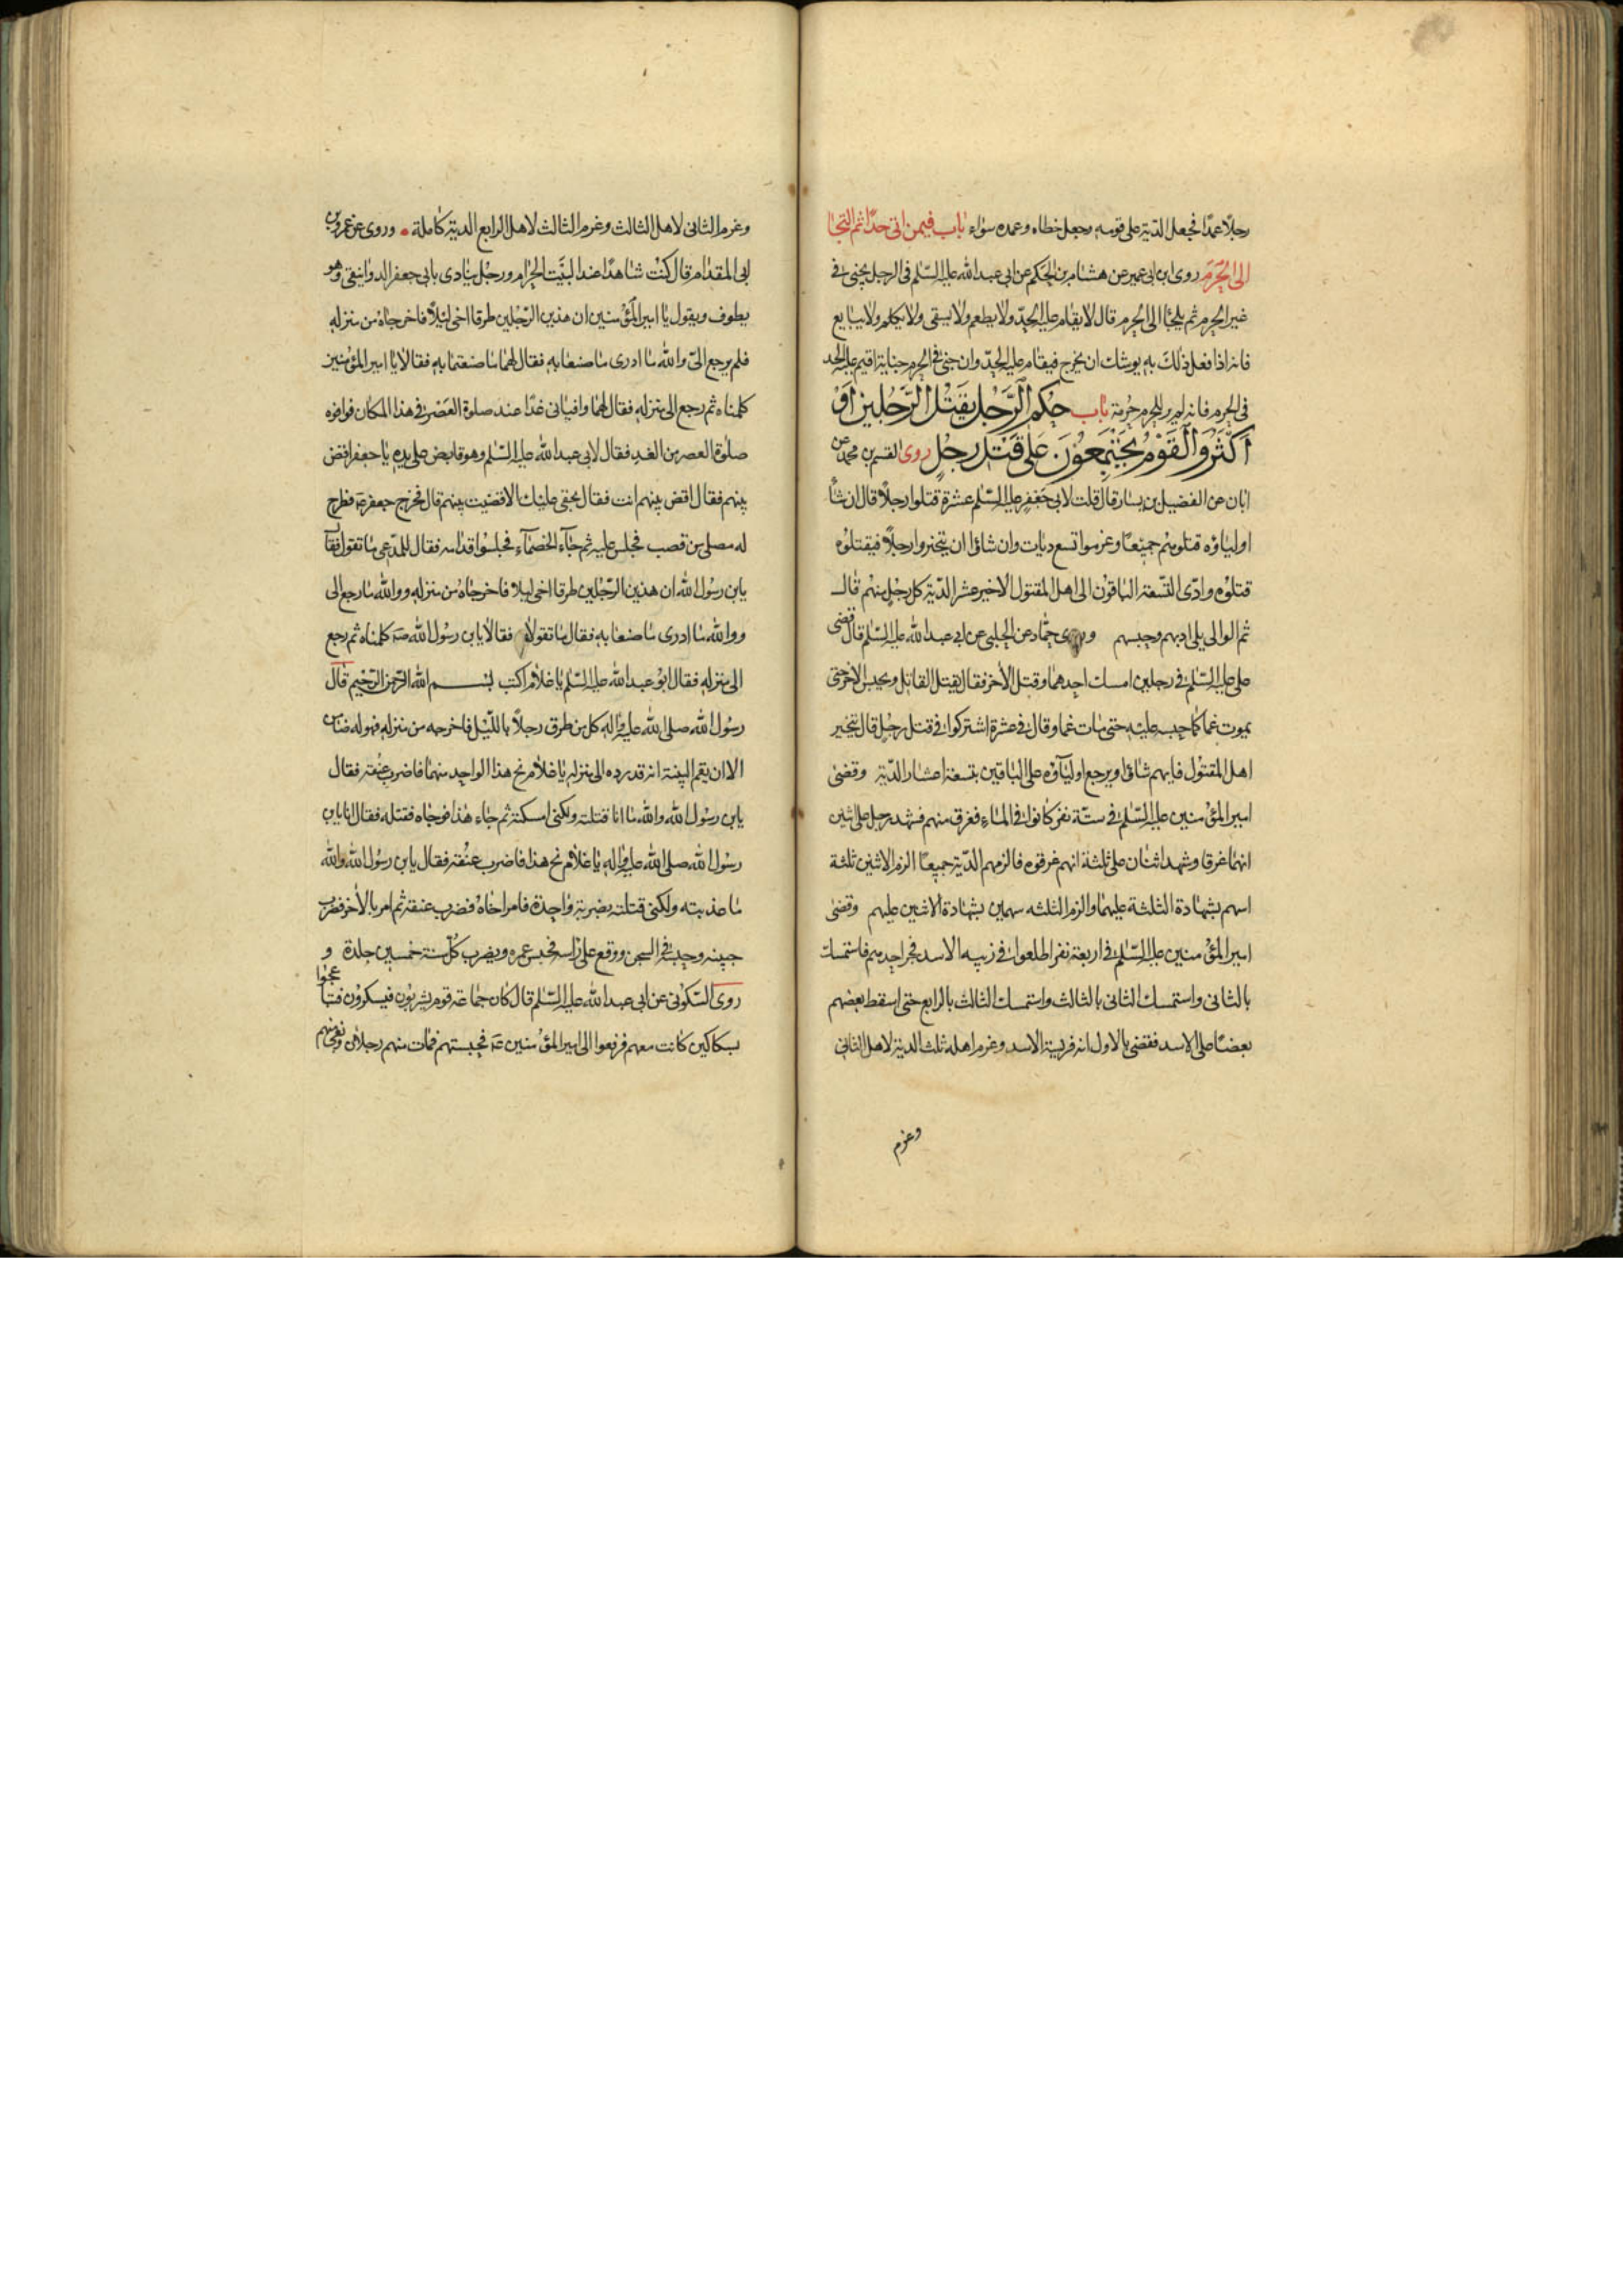 رجلا عمدا فجعل الدية على قومه وجعل خطاه وعمده سواء باب فيمن اتى حدا ثم التجا
الى الحرم روى ابن ابى عمير عن هشام بن الحكم عن ابى عبد الله عليه السلم فى الرجل يجنى فى
غير الحرم ثم يلجا الى الحرم قال لا يقام عليه الحد ولا يطعم ولا يسقى ولا يكلم ولا يبايع
فانه اذا فعل ذلك به يوشك ان يخرج فيقام عليه الحد وان جنى فى الحرم جناية اقيم عليه الحد
فى الحرم فانه لم ير للحرم حرمة باب حكم الرجل يقتل الرجلين او
اكثر والقوم يجتمعون على قتل رجل روى القسم بن محمد عن
ابان عن الفضيل بن يسار قال قلت لابى جعفر عليه السلم عشرة قتلوا رجلا قال ان شا
اولياؤه قتلوهم جميعا وغرموا تسع ديات وان شاؤا ان يتخيروا رجلا فيقتلوه
قتلوه وادى التسعة الباقون الى اهل المقتول الاخير عشر الدية كل رجل منهم قال
ثم الوالى يلى ادبهم وحبسهم وروى حماد عن الحلبى عن ابى عبد الله عليه السلم قال قضى
على عليه السلم فى رجلين امسك احدهما وقتل الآخر فقال يقتل القاتل ويحبس الآخر حتى
يموت غما كما حبسه عليه حتى مات غما وقال فى عشرة اشتركوا فى قتل رجل قال يتخير
اهل المقتول فايهم شاؤا ويرجع اولياؤه على الباقين بتسعة اعشار الدية وقضى
امير المؤمنين عليه السلم فى ستة نفر كانوا فى الماء فغرق منهم فشهد رجل على اثنين
انهما غرقا وشهد اثنان على ثلثة انهم غرقوه فالزمهم الدية جميعا الزم الاثنين ثلثة
اسهم بشهادة الثلثة عليهما والزم الثلثه سهمين بشهادة الاثنين عليهم وقضى
امير المؤمنين عليه السلم فى اربعة نفر اطلعوا فى زبيه الاسد فخر احدهم فاستمسك
بالثانى واستمسك الثانى بالثالث واستمسك الثالث بالرابع حتى اسقط بعضهم
بعضا على الاسد فقضى بالاول انه فريسة الاسد وغرم اهله ثلث الدية لاهل الثانى
وغرم
وغرم الثانى لاهل الثالث وغرم الثالث لاهل الرابع الدية كاملة وروى عن عمرو بن
ابى المقدام قال كنت شاهدا عند البيت الحرام ورجل ينادى بابى جعفر الدوانيقى وهو
يطوف ويقول يا امير المؤمنين ان هذين الرجلين طرقا اخى ليلا فاخرجاه من منزله
فلم يرجع الى والله ما ادرى ما صنعا به فقال لهما ما صنعتما به فقالا يا امير المؤمنين
كلمناه ثم رجع الى منزله فقال لهما وافيانى غدا عند صلوة العصر فى هذا المكان فوافوه
صلوة العصر من الغد فقال لابى عبد الله عليه السلم وهو قابض على يده يا جعفر اقض
بينهم فقال اقض بينهم انت فقال بحقى عليك الا قضيت بينهم قال فخرج جعفر عه فطرح
له مصلى من قصب فجلس عليه ثم جاء الخصماء فجلسوا قدامه فقال للمدعى ما تقول فقال
يابن رسول الله ان هذين الرجلين طرقا اخى ليلا فاخرجاه من منزله ووالله ما رجع الى
ووالله ما ادرى ما صنعا به فقال ما تقولان فقالا يا بن رسول الله صه كلمناه ثم رجع
الى منزله فقال ابو عبد الله عليه السلم يا غلام اكتب بسم الله الرحمن الرحيم قال
رسول الله صلى الله عليه واله كل من طرق رجلا بالليل فاخرجه من منزله فهو له ضامن
الا ان يقيم البينة انه قد رده الى منزله يا غلام نح هذا الواحد منهما فاضرب عنقه فقال
يابن رسول الله والله ما انا قتلته ولكنى امسكته ثم جاء هذا فوجاه فقتله فقال انا يابن
رسول الله صلى الله عليه واله يا غلام نح هذا فاضرب عنقه فقال يابن رسول الله والله
ما عذبته ولكنى قتلته بضربة واحدة فامر اخاه فضرب عنقه ثم امر بالآخر فضرب
جبينه وحبسه فى السجن ووقع على راسه فحبس عمره ويضرب كل سنة خمسين جلدة و
روى السكونى عن ابى عبد الله عليه السلم قال كان جماعة قوم يشربون فيسكرون فتباعجوا
بسكاكين كانت معهم فرفعوا الى امير المؤمنين عه فحبستهم فمات منهم رجلان وبقى منهم